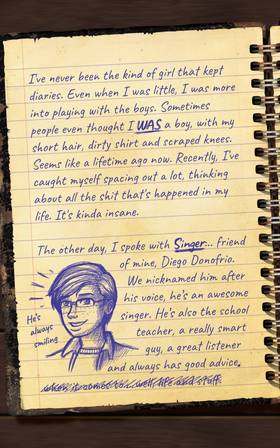 I've never been the kind of girl that kept
diaries. Even when I was little, I was more
into playing with the boys. Sometimes
people even thought I WAS a boy, with my
short hair, dirty shirt and scraped knees.
Seems like a lifetime ago now. Recently, I've
caught myself spacing out a lot, thinking
about all the shit that's happened in my
life. It's kinda insane.
The other day, I spoke with Singer... friend
of mine, Diego Donofrio.
We nicknamed him after
his voice, he's an awesome
singer. He's also the school
teacher, a really smart
guy, a great listener
and always has good advice.
He's
always
smiling
when it comes to
life and stuff.